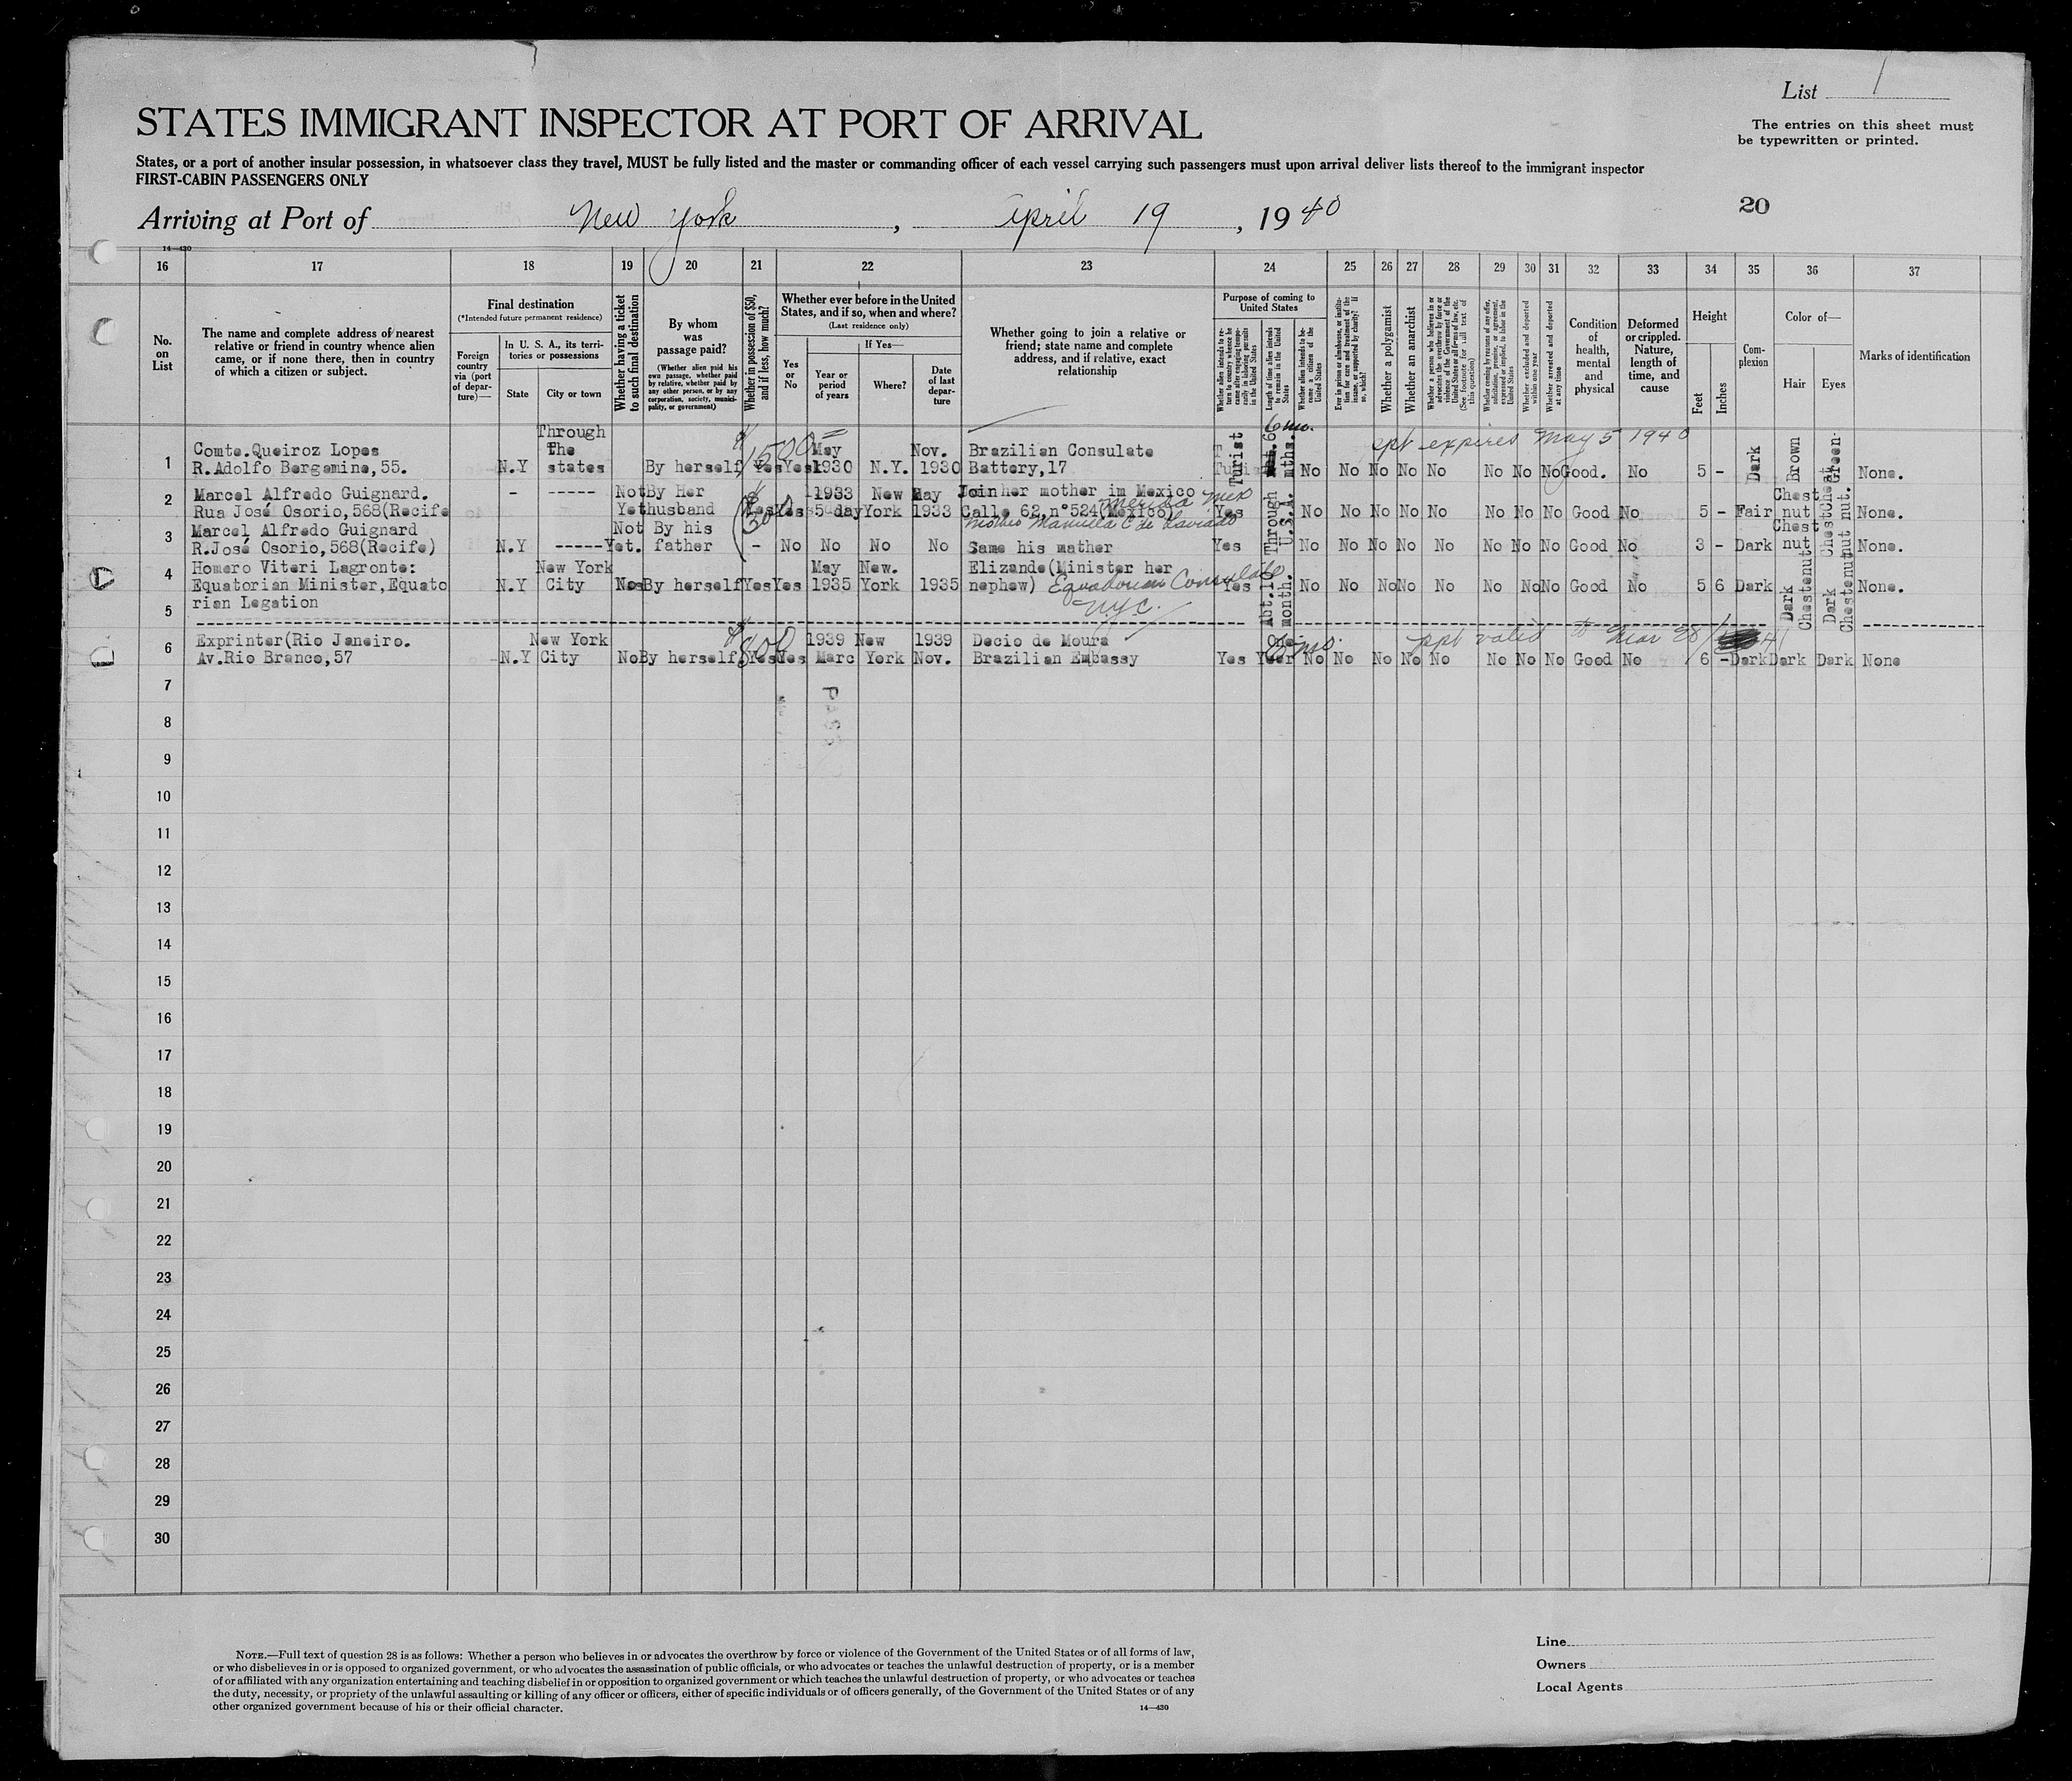 List 1
STATES IMMIGRANT INSPECTOR AT PORT OF ARRIVAL
The entries on this sheet must
be typewritten or printed.
States, or a port of another insular possession, in whatsoever class they travel, MUST be fully listed and the master or commanding officer of each vessel carrying such passengers must upon arrival deliver lists thereof to the immigrant inspector
FIRST-CABIN PASSENGERS ONLY
Arriving at Port of New York, April 19, 1940
20
14—430
16 17 18 19 20 21 22 23 24 25 26 27 28 29 30 31 32 33 34 35 36 37
No. on List
The name and complete address of nearest
relative or friend in country whence alien
came, or if none there, then in country
of which a citizen or subject.
Final destination
(*Intended future permanent residence)
Foreign country via (port of departure)—
In U. S. A., its territories or possessions
State
City or town
Whether having a ticket to such final destination
By whom was passage paid?
(Whether alien paid his own passage, whether paid by relative, whether paid by any other person, or by any corporation, society, municipality, or government)
Whether in possession of $50, and if less, how much?
Whether ever before in the United States, and if so, when and where?
(Last residence only)
Yes or No
If Yes—
Year or period of years
Where?
Date of last departure
Whether going to join a relative or
friend; state name and complete
address, and if relative, exact
relationship
Purpose of coming to United States
Whether alien intends to return to country whence he came after engaging temporarily in laboring pursuits in the United States
Length of time alien intends to remain in the United States
Whether alien intends to become a citizen of the United States
Ever in prison or almshouse, or institution for care and treatment of the insane, or supported by charity? If so, which?
Whether a polygamist
Whether an anarchist
Whether a person who believes in or advocates the overthrow by force or violence of the Government of the United States or all forms of law, etc. (See footnote for full text of this question)
Whether coming by reason of any offer, solicitation, promise, or agreement, expressed or implied, to labor in the United States
Whether excluded and deported within one year
Whether arrested and deported at any time
Condition of health, mental and physical
Deformed or crippled. Nature, length of time, and cause
Height
Feet
Inches
Complexion
Color of—
Hair
Eyes
Marks of identification
1 Comte.Queiroz Lopes Through The May Nov. Brazilian Consulate 6 mo. ppt expires May 5 1940
R.Adolfo Bergamine,55. N.Y states By herself Yes $1500 Yes 1930 N.Y. 1930 Battery,17 Turist mths. No No No No No No No No Good. No 5 - Dark Brown Green- None.
2 Marcel Alfredo Guignard. - ----- Not By Her 1933 New May Join her mother im Mexico Merida Mex Chest
Rua José Osorio,568(Recife Yet husband Yes $500 Yes 5 day York 1933 Calle 62,n°524(Mexico) Yes Through U.S.A. No No No No No No No No Good No 5 - Fair nut None.
3 Marcel Alfredo Guignard Not By his Mother Manuella C de Chest
R.José Osorio,568(Recife) N.Y -----Yet. father - No No No No Same his mather Yes No No No No No No No No Good No 3 - Dark nut Chestnut. None.
4 Homero Viteri Lagronte: New York May New. Elizande(Minister her
Equatorian Minister,Equato N.Y City By herself Yes Yes 1935 York 1935 nephew) Equadorian Consulate Yes Abt.10 month. No No No No No No No No Good No 5 6 Dark Dark Chestenut Dark Chestenut None.
5 rian Legation N.Y.C.
6 Exprinter(Rio Janeiro. New York 1939 New 1939 Decio de Moura ppt valid to Mar 28/41
Av.Rio Branco,57 N.Y City No By herself Yes $800 Yes Marc York Nov. Brazilian Embassy Yes Year No No No No No No No No Good No 6 - Dark Dark Dark None
7
8
9
10
11
12
13
14
15
16
17
18
19
20
21
22
23
24
25
26
27
28
29
30
NOTE.—Full text of question 28 is as follows: Whether a person who believes in or advocates the overthrow by force or violence of the Government of the United States or of all forms of law,
or who disbelieves in or is opposed to organized government, or who advocates the assassination of public officials, or who advocates or teaches the unlawful destruction of property, or is a member
of or affiliated with any organization entertaining and teaching disbelief in or opposition to organized government or which teaches the unlawful destruction of property, or who advocates or teaches
the duty, necessity, or propriety of the unlawful assaulting or killing of any officer or officers, either of specific individuals or of officers generally, of the Government of the United States or of any
other organized government because of his or their official character.
14—430
Line
Owners
Local Agents